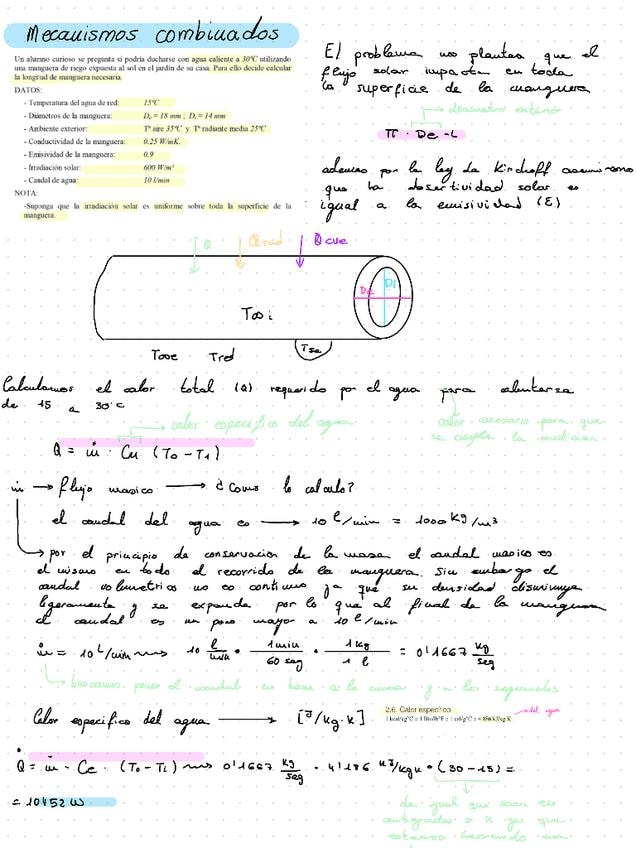 Mecanismos combinados
Un alumno curioso se pregunta si podría ducharse con agua caliente a 30ºC utilizando
una manguera de riego expuesta al sol en el jardín de su casa. Para ello decide calcular
la longitud de manguera necesaria.
DATOS:
- Temperatura del agua de red: 15ºC
- Diámetros de la manguera: De = 18 mm ; Di = 14 mm
- Ambiente exterior: Tª aire 35ºC y Tª radiante media 25ºC
- Conductividad de la manguera: 0.25 W/mK.
- Emisividad de la manguera: 0.9
- Irradiación solar: 600 W/m²
- Caudal de agua: 10 l/min
NOTA:
-Suponga que la irradiación solar es uniforme sobre toda la superficie de la
manguera.
El problema nos plantea que el
flujo solar impacta en toda
la superficie de la manguera
diametro exterior
π · De · L
ademas por la ley de Kirchoff asumimos
que la absortividad solar es
igual a la emisividad (ε)
Q Qrad Qcve
De Di
T∞i
T∞e Trd Tse
Calculamos el calor total (Q) requerido por el agua para calentarse
de 15 a 30ºc
calor especifico del agua
calor necesario para que
se cumpla la
Q = ṁ · Ce (To - Ti)
ṁ → flujo masico → d Como lo calculo?
el caudal del agua es → 10 l/min = 1000 kg/m³
por el principio de conservacion de la masa el caudal masico es
el mismo en todo el recorrido de la manguera. Sin embargo el
caudal volumetrico no es continuo ya que su densidad disminuye
ligeramente y se expande por lo que al final de la manguera
el caudal es un poco mayor a 10 l/min
ṁ = 10 L/min → 10 l/min · 1 min/60 seg · 1 kg/1 l = 0'1667 kg/seg
buscamos poner el caudal en base a la masa y a los segundos
Calor especifico del agua → [J/kg·K]
2.6. Calor específico
del agua
Q̇ = ṁ · Ce · (To - Ti) → 0'1667 kg/seg · 4'186 kJ/kgK · (30 - 15) =
= 10452 W
da igual que sean en
centigrados o K ya que
estamos haciendo una